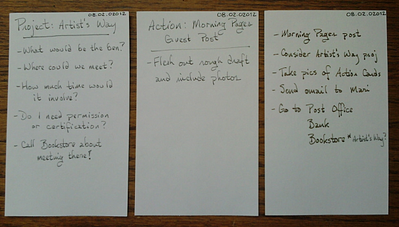 08.02.02012
Project: Artist's Way
- What would be the ben?
- Where could we meet?
- How much time would
it involve?
- Do I need permission
or certification?
- Call Bookstore about
meeting there!
08.02.02012
Action: Morning Pages
Guest Post
- Flesh out rough draft
and include photos
08.02.02012
- Morning Pages post
- Consider Artist's Way proj
- Take pics of Action Cards
- Send email to Mani
- Go to Post Office
Bank
Bookstore * Artist's Way?